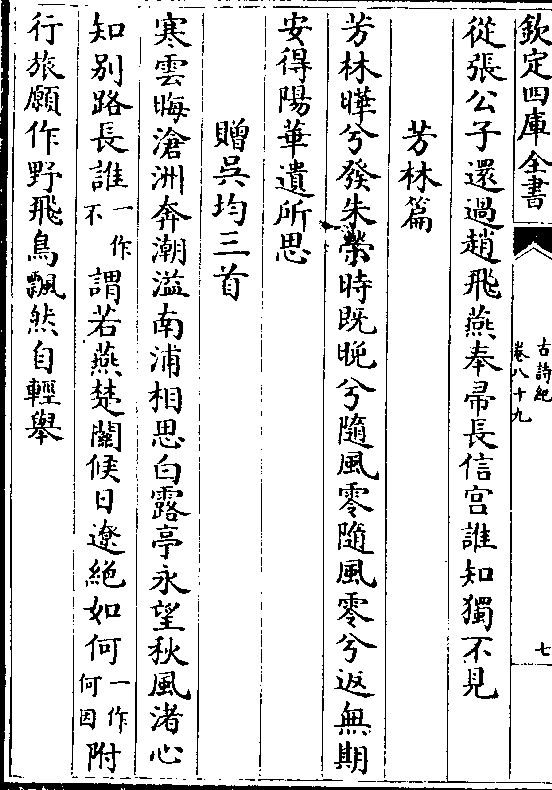 欽定四庫全書
古詩紀
卷八十九
七
從張公子還過趙飛燕奉帚長信宫誰知獨不見
芳林篇
芳林曄兮發朱榮時既晚兮隨風零隨風零兮返無期
安得陽華遺所思
贈吳均三首
寒雲晦滄洲奔潮溢南浦相思白露亭永望秋風渚心
知别路長誰一作不謂若燕楚關候日遼絶如何一作何因附
行旅願作野飛鳥飄然自輕舉